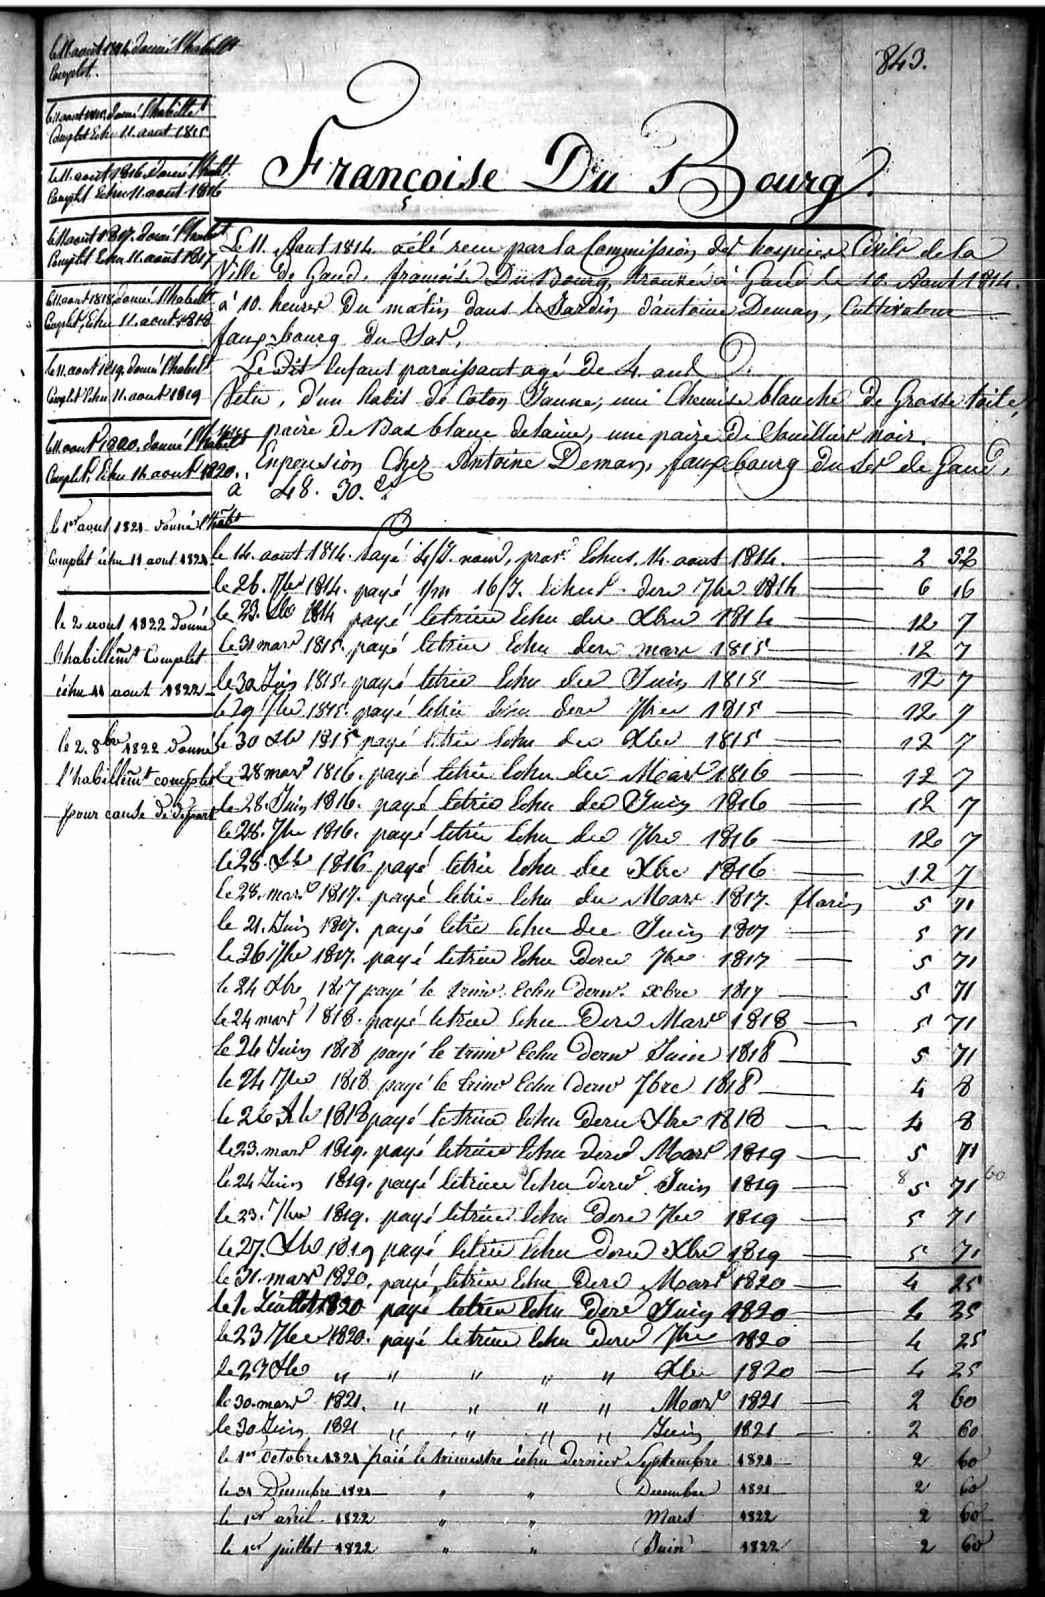 843.
Françoise Du Bourg.
le 11 aout 1814 donné l'habillt
Complet.
le 11 aout donné l'habillt
Complet Echu 11. aout 1815
le 11. aout 1816. donné l'habt.
Complt Echu 11. aout 1816
le 11 aout 1817. donné l'habt
Complt Echu 11. août 1817
le 11 aout 1818 donné l'habillt
Complt, Echu 11. aout 1818
le 11. aout 1819. donné l'habt
Complt Echu 11. aout 1819
le 11 aout 1820. donné l'habt
Complt, Echu 11. aout 1820.
le 1er aout 1821 donné l'habt
Complet échu 11 aout 1821
le 2 aout 1822 donné
l'habillemt Complet
échu 11 aout 1822
le 2. 8bre 1822 donné
l'habillemt complet
pour cause de départ
Le 11. Aout 1814. a été recu par la Commission des hospices Civils de la
Ville de Gand. françoise Du Bourg, trouvée à Gand le 10. Aout 1814.
à 10. heures du matin dans le Jardin d'antoine Deman, Cultivateur
faux-bourg du
Le dit Enfant paraissant agé de 4. ans
Vetu, d'un habit de Coton Jaune, une Chemise blanche de Grosse toile,
une paire de Bas blanc de laine, une paire de Souilliers noir.
Enpension Chez Antoine Deman, faux bourg du de Gand,
à 48. 30. Cs
le 14. aout 1814. payé Echus. 14. aout 1814. 2 32
le 26. 7bre 1814. payé 16/J. Echus dere 7bre 1814 6 16
le 23. Xbre 1814 payé le trim Echu der Xbre 1814 12 7
le 31 mars 1815. payé le trim Echu dere mars 1815 12 7
le 30 Juin 1815. payé le trim Echu der Juin 1815 12 7
le 29 7bre 1815. payé le trim Echu dere 7bre 1815 12 7
le 30 Xbre 1815 payé le trim Echu der Xbre 1815 12 7
le 28 mars 1816. payé le trim Echu der Mars 1816 12 7
le 28. Juin 1816. payé le trim Echu der Juin 1816 12 7
le 28. 7bre 1816. payé le trim Echu der 7bre 1816 12 7
le 28. Xbre 1816 payé le trim Echu der Xbre 1816 12 7
le 28. mars 1817. payé le trim Echu der Mars 1817. florins 5 71
le 21. Juin 1817. payé le trim Echu der Juin 1817 5 71
le 26 7bre 1817. payé le trim Echu Dere 7bre 1817 5 71
le 24 Xbre 1817 payé le trimr. Echu dernr. Xbre 1817 5 71
le 24 mars 1818. payé le trim Echu Dere Mars 1818 5 71
le 24 Juin 1818 payé le trimr Echu dernr Juin 1818 5 71
le 24 7bre 1818 payé le trimr Echu dernr 7bre 1818 4 8
le 26 Xbre 1818 payé le trim Echu Dere Xbre 1818 4 8
le 23. mars 1819. payé le trim Echu dere Mars 1819 5 71
le 24 Juin 1819. payé le trim Echu dere Juin 1819 8 5 71 60
le 23. 7bre 1819. payé le trim Echu Dere 7bre 1819 5 71
le 27. Xbre 1819 payé le trim Echu dere Xbre 1819 5 71
le 31. mars 1820. payé le trim Echu Dere Mars 1820 4 25
le 1. Juillet 1820 payé le trim Echu Dere Juin 1820 4 25
le 23 7bre 1820. payé le trim Echu dere 7bre 1820 4 25
le 27 Xbre " " " " " Xbre 1820 4 25
le 30. mars 1821. " " " " Mars 1821 2 60
le 30 Juin 1821 " " " " Juin 1821 2 60
le 1er Octobre 1821 paié le trimestre échu dernier Septembre 1821 2 60
le 31 Décembre 1821 " " Decembre 1821 2 60
le 1er avril 1822 " " Mars 1822 2 60
le 1er juillet 1822 " " Juin 1822 2 60